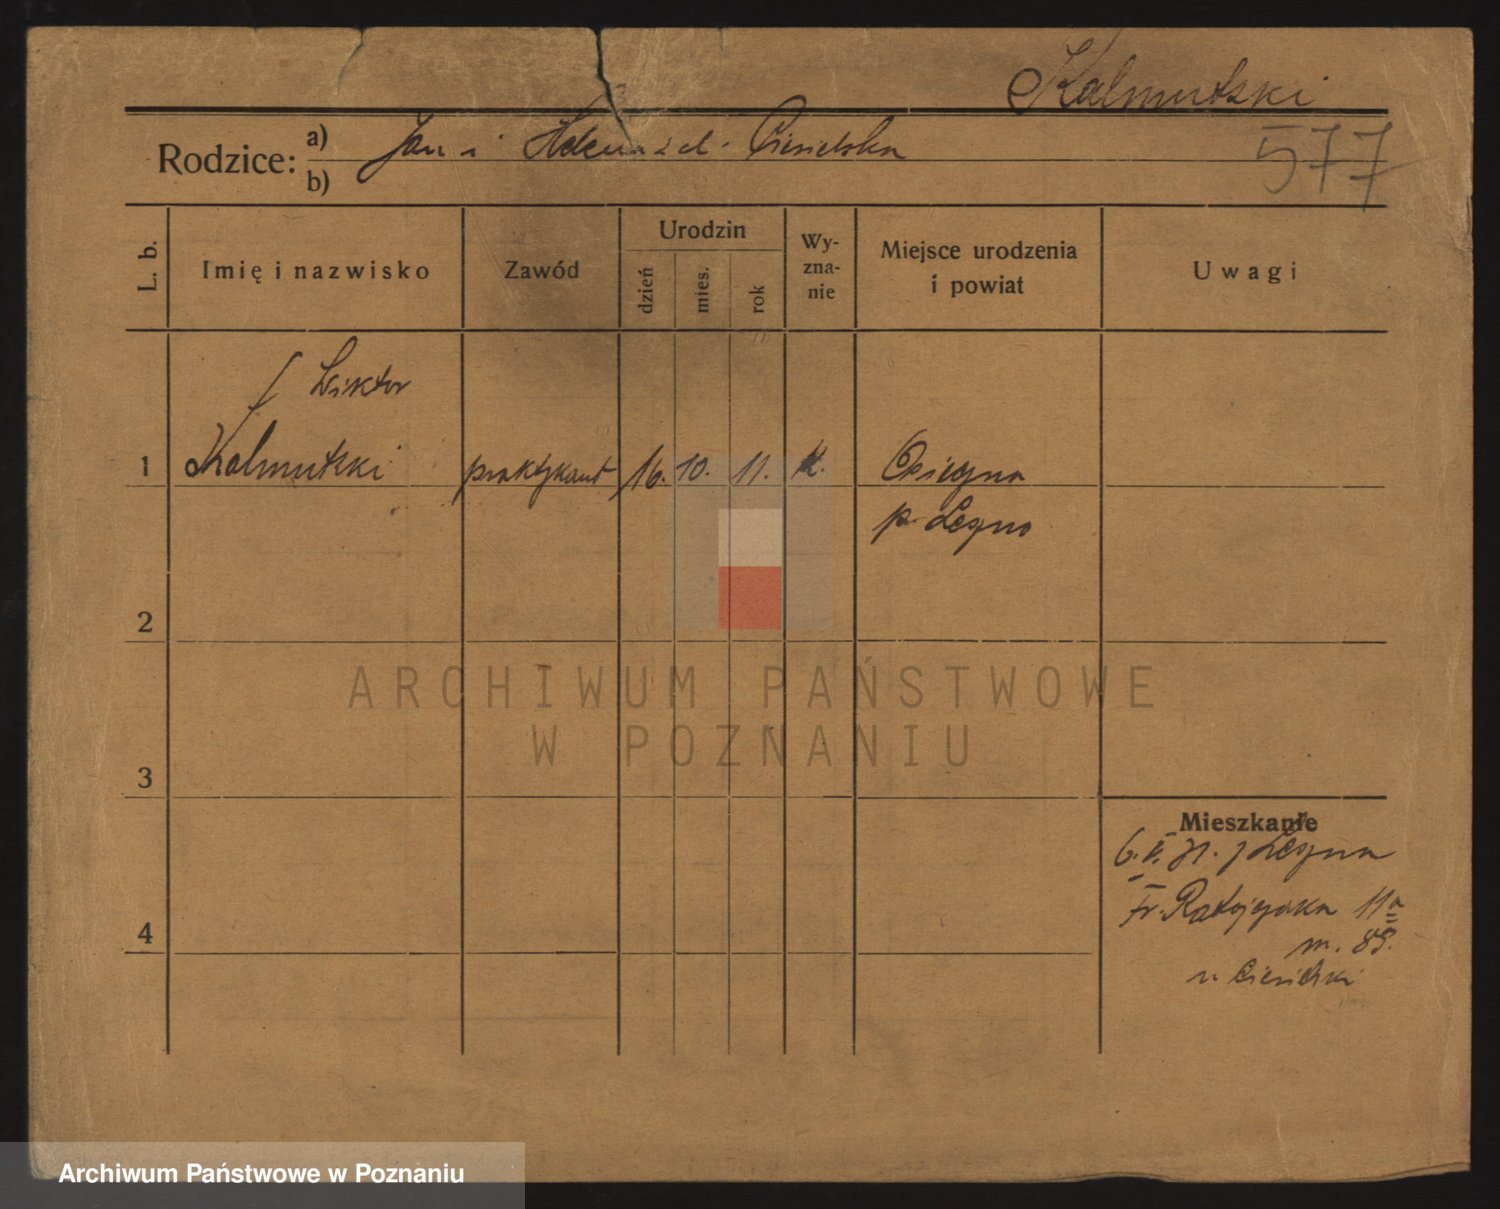 Kalmutzki
577
Rodzice: a) Jan i Helena z d. Ciesielska
b)
L. b.
Imię i nazwisko
Zawód
Urodzin
dzień
mies.
rok
Wy-
zna-
nie
Miejsce urodzenia
i powiat
Uwagi
Wiktor
1 Kalmutzki praktykant 16. 10. 11. k. Osiegna
p. Leszno
2
3
4
Mieszkanie
6. V. 31. z Leszna
Fr. Ratajczaka 11a
m. 85.
u. Ciesielski
ARCHIWUM PAŃSTWOWE
W POZNANIU
Archiwum Państwowe w Poznaniu